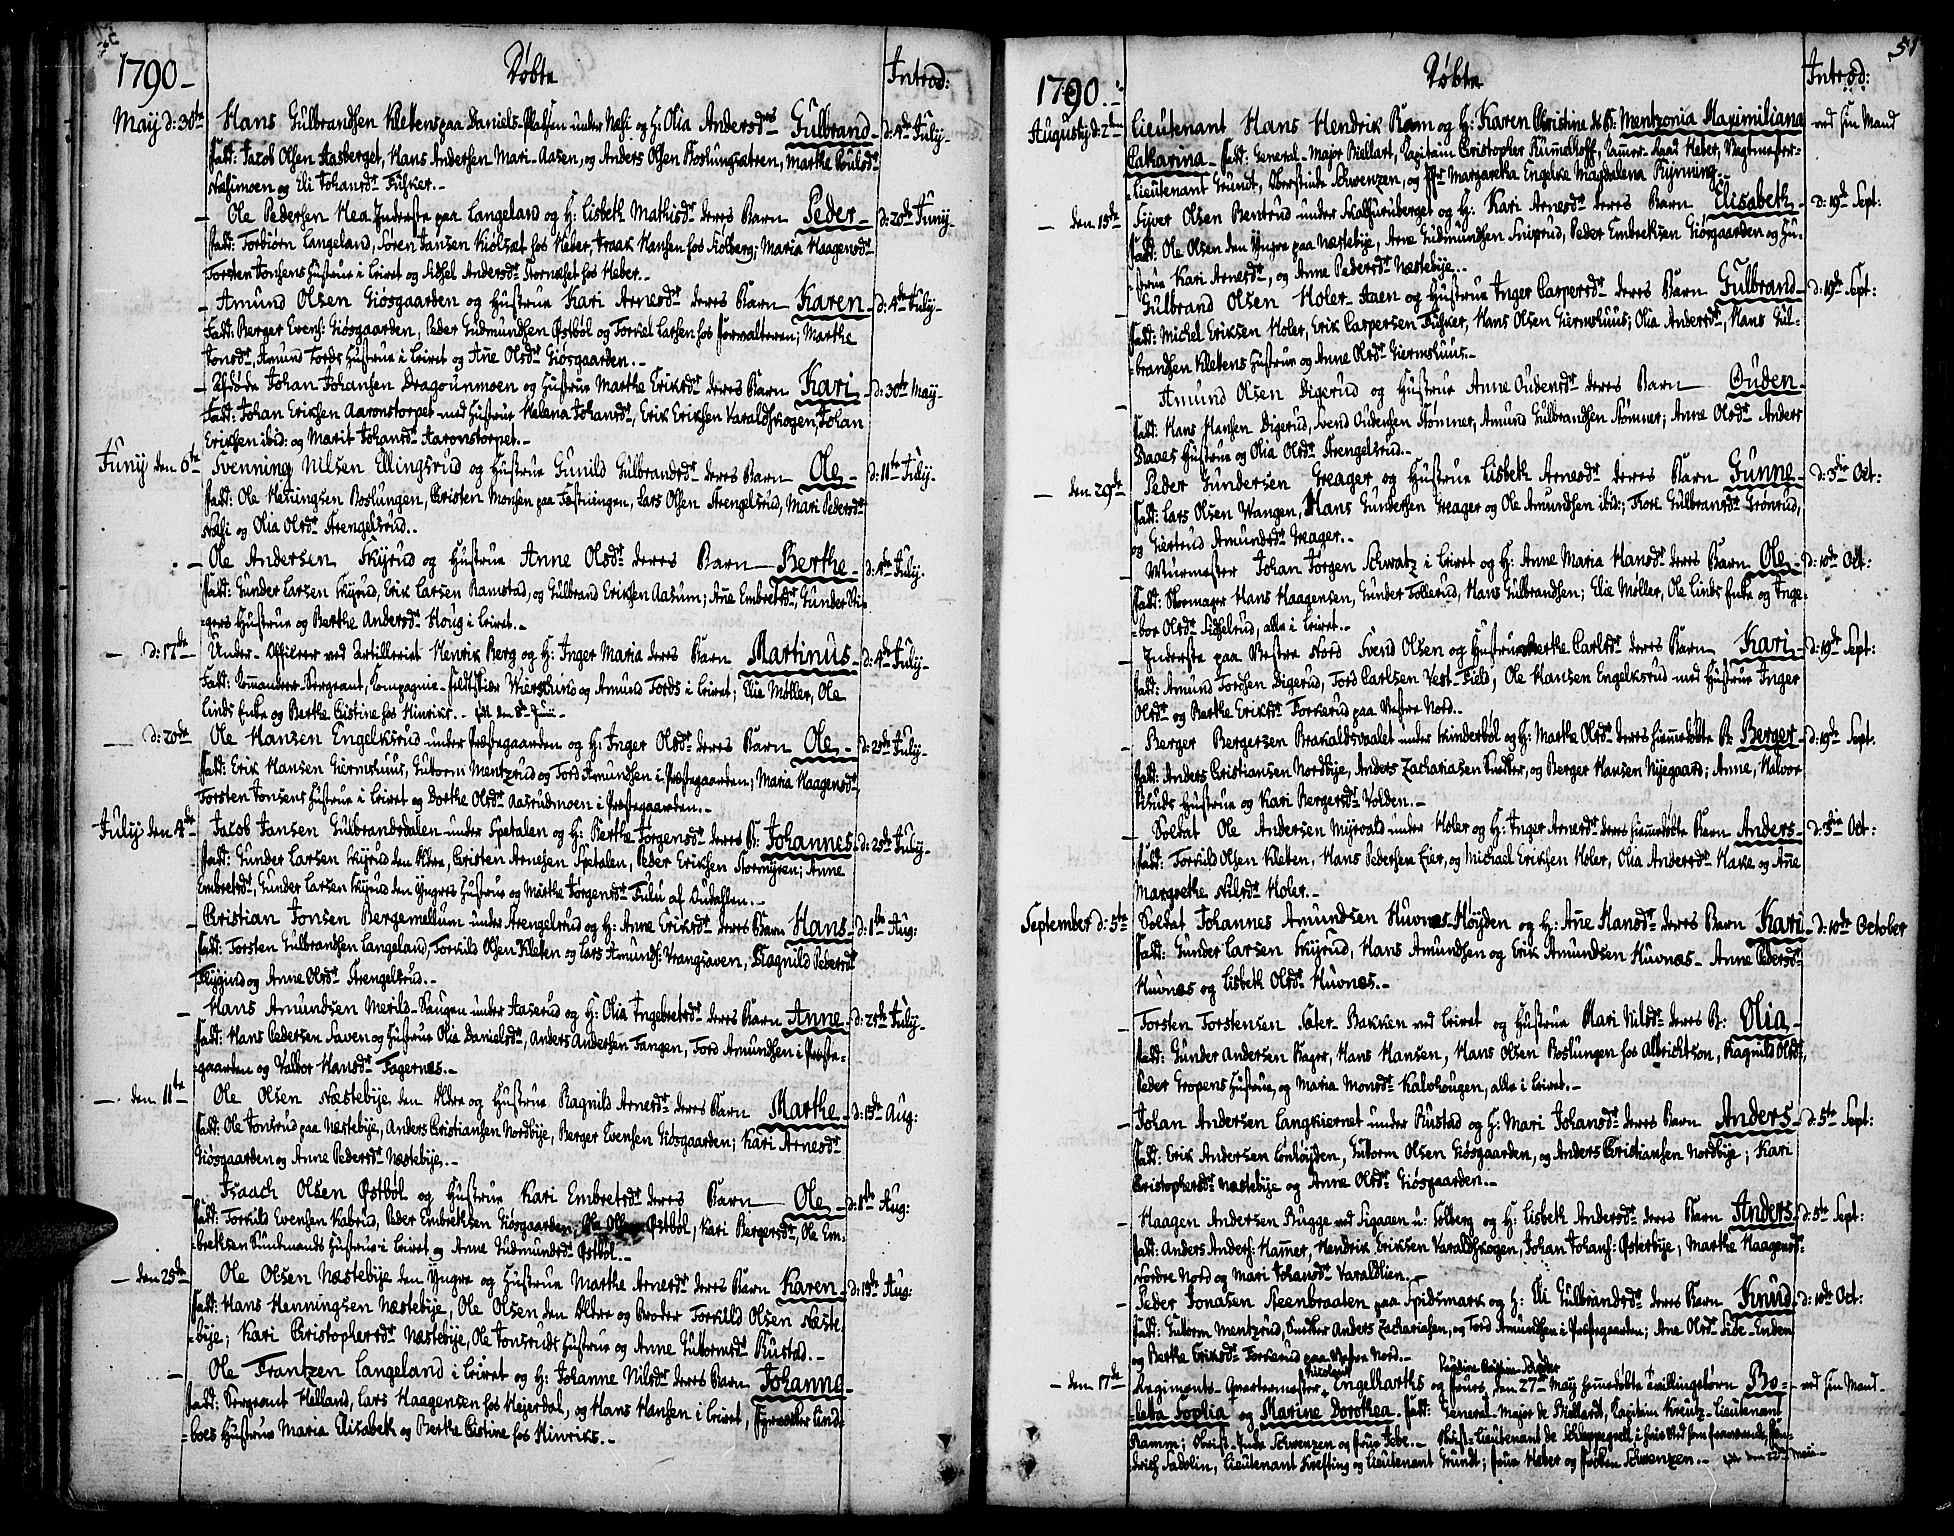 1790 –
Døbte
Introd:
May d: 30te Hans Gulbrandsen Kletens paa Daniels-Pladsen under Næsi og H: Olia Andersdr Gulbrand – d: 4de July –
Fadd: Jacob Olsen Aasberget, Hans Andersen Mari-Aasen, og Anders Olsen Roslungsætren, Marthe Poulsdr
Næsimoen og Eli Johansdr Fischer. –
– Ole Pedersen Hea Inderste paa Langeland og H: Lisbeth Mathisdr deres Barn Peder – d: 20de Juny –
Fadd: Torbiørn Langeland, Søren Jansen Kiølsæt hos Heber, Iraak Hansen hos Solberg; Maria Haagensdr
Torsten Jonsens Hustrue i Leiret og Sidsel Andersdr Stornæset hos Heber. –
– Amund Olsen Giøsgaarden og Hustrue Kari Arnesdr deres Barn Karen – d: 4de July –
Fadd: Berger Evens: Giøsgaarden, Peder Gudmundsen Østbøl og Torkel Larsen hos Forvalteren; Marthe
Jonsdr, Amund Tords Hustrue i Leiret og Ane Olsdr Giøsgaarden. –
– Afdøde Johan Johansen Dragounmoen og Hustrue Marthe Eriksdr deres Barn Kari – d: 30te May –
Fadd: Johan Eriksen Aaronstorpet med Hustrue Helena Johansdr, Erik Eriksen Varaldskogen, Johan
Eriksen ibid: og Marit Johansdr Aaronstorpet. –
Juny den 6te Svenning Nilsen Ellingsrud og Hustrue Gunild Gulbrandsdr deres Barn Ole – d: 11te July –
Fadd: Ole Henningsen Roslungen, Christen Monsen paa Fæstningen, Lars Olsen Strengelsrud, Mari Pedersdr
Næsi og Olia Olsdr Strengelsrud. –
– Ole Andersen Skyrud og Hustrue Anne Olsdr deres Barn – Berthe – d: 4de July.
Fadd: Gunder Larsen Skyrud, Erik Larsen Ramstad, og Gulbrand Eriksen Aasum; Ane Embretsdr, Gunder Sti-
gers Hustrue og Berthe Andersdr Houg i Leiret. –
– d: 17de – Under-Officeer ved Artilleriet Henrik Berg og H: Inger Maria deres Barn Martinus – d: 4de July –
Fadd: Commandeer-Sergeant, Compagnie-Feldtskiær Wierslund og Amund Tords i Leiret; Elie Møller, Ole
Linds Enke og Berthe Cistine hos Hinriks. – født den 8de Juni –
– d: 20de Ole Hansen Engelksrud under Præstegaarden og H: Inger Olsdr deres Barn Ole – d: 25de July –
Fadd: Erik Hansen Giermshuus, Guttorm Mentzrud og Tord Amundsen i Præstegaarden; Maria Haagensdr
Torsten Jonsens Hustrue i Leiret og Dorthe Olsdr Aasrudmoen i Præstegaarden. –
July den 4de Jacob Jansen Gulbrandsdalen under Spetalen og H: Berthe Jørgensdr deres B: Johannes – d: 25de July –
Fadd: Gunder Larsen Skyrud den Ældre, Christen Arnesen Spetalen, Peder Eriksen Stormyren; Anne
Embretsdr, Gunder Larsen Skyrud den Yngres Hustrue og Marthe Jørgensdr Fulu af Oudahlen. –
– Christian Jonsen Bergemellum under Strengelsrud og H: Anne Eriksdr deres Barn Hans – d: 1ste Aug:
Fadd: Torsten Gulbrandsen Langeland, Torkild Olsen Kleten og Lars Amunds: Vrangsaven, Ragnild Pedersdr
Flygind og Anne Olsdr Strengelsrud. –
– Hans Amundsen Merild-Haugen under Aaserud og H: Olia Ingebretsdr deres Barn Anne – d: 25de July –
Fadd: Hans Pedersen Saven og Hustrue Olia Danielsdr, Anders Andersen Tangen, Tord Amundsen i Præste-
gaarden og Valbor Hansdr Fagernæs. –
– den 11te Ole Olsen Næstebye den Ældre og Hustrue Ragnild Arnesdr deres Barn Marthe – d: 15de Aug:
Fadd: Ole Jonsrud paa Næstebye, Anders Christiansen Nordbye, Berger Evensen Giøsgaarden; Kari Arnesdr
Giøsgaarden og Anne Pedersdr Næstebye. –
– Isaach Olsen Østbøl og Hustrue Kari Embretsdr deres Barn – Ole – d: 8de Aug:
Fadd: Torkild Evensen Kabrud, Peder Embretsen Giøsgaarden, Ole Olsen Østbøl, Kari Bergersdr, Ole Em-
bretsen Hustrue i Leiret og Anne Gudmundsdr Østbøl. –
– den 25de Ole Olsen Næstebye den Yngre og Hustrue Marthe Arnesdr deres Barn Karen – d: 15de Aug:
Fadd: Hans Henningsen Næstebye, Ole Olsen den Ældre og Broder Torkild Olsen Næste-
bye; Kari Christophersdr Næstebye, Ole Jonsruds Hustrue og Anne Guttormsdr Rustad. –
– Ole Frantzen Langeland i Leiret og H: Johanne Nilsdr deres Barn Johanne –
Fadd: Sergeant Helland, Lars Haagensen hos Hejerdal, og Hans Hansen i Leiret, Lind-
boes Hustrue Maria Elisabeth og Berthe Cistine hos Hinriks. –
51
1790. –
Døbte
Introd:
Augusty d: 2den Lieutenant Hans Hendrik Ram og H: Karen Christine B: Mentzonia Maximiliana ved sin Mand
Catharina – Fadd: General-Major Biellart, Capitain Christopher Rummelhoff, Cammer-Raad Heber, Vagtmester-
Lieutenant Grundt, Oberstinde Schwenzen, og Margaretha Engelke Magdalena Rynning. –
– den 15de Syver Olsen Bentrud under Skasuruberget og H: Kari Arnesdr deres Barn Elisabeth – d: 19de Sept:
Fadd: Ole Olsen den Yngre paa Næstebye, Arne Gudmundsen Sniprud, Peder Embretsen Giøsgaarden og Hu-
strue Kari Arnesdr, og Anne Pedersdr Næstebye. –
– Gulbrand Olsen Holer-Aaen og Hustrue Inger Caspersdr deres Barn Gulbrand – d: 19de Sept:
Fadd: Michel Eriksen Holer, Erik Caspersen Fischer, Hans Olsen Giermshuus; Olia Andersdr, Hans Gul-
brandsen Kletens Hustrue og Anne Olsdr Giermshuus. –
– Amund Olsen Digerud og Hustrue Anne Oudensdr deres Barn – Ouden –
Fadd: Hans Hansen Digerud, Svend Oudensen Stømner, Amund Gulbrandsen Stømner; Anne Olsdr Anders
Braaes Hustrue og Olia Olsdr Strengelsrud. –
– den 29de Peder Gundersen Greager og Hustrue Lisbeth Arnesdr deres Barn Gunne – d: 3die Oct:
Fadd: Lars Olsen Wangen, Hans Gundersen Greager og Ole Amundsen ibid:; Gulbrandsdr Grønrud,
og Giertrud Amundsdr Greager. –
– Muurmester Johan Jørgen Schwatz i Leiret og H: Anne Maria Hansdr deres Barn Ole – d: 10de Oct:
Fadd: Skoemager Hans Haagensen, Gunder Tollerud, Hans Gulbrandsen; Elie Møller, Ole Linds Enke og Inge-
bor Olsdr Sidselrud, alle i Leiret. –
– Inderste paa Vestre Nord Svend Olsen og Hustrue Marthe Carlsdr deres Barn Kari – d: 19de Sept:
Fadd: Amund Tordsen Digerud, Tord Carlsen Vest-Field, Ole Hansen Engelksrud med Hustrue Inger
Olsdr og Berthe Eriksdr Torkerud paa Vestre Nord. –
– Berger Bergersen Brakaldsvaalet under Skinderbøl og H: Marthe Olsdr deres hiemmedøbte B: Berger – d: 19de Sept:
Fadd: Anders Christiansen Nordbye, Anders Zachariasen Snedker, og Berger Hansen Nyegaard; Anne, Halvor
Hustrue og Kari Bergersdr Volden. –
– Soldat Ole Andersen Myrvold under Holer og H: Inger Arnesdr deres hiemmedøbte Barn Anders – d: 3die Oct:
Fadd: Torkild Olsen Kleten, Hans Pedersen Eier, og Michael Eriksen Holer, Olia Andersdr Hake og Ane
Margrethe Nilsdr Holer.
September d: 5te Soldat Johannes Amundsen Huvnæs-Høyden og H: Ane Hansdr deres Barn Kari – d: 10de October
Fadd: Gunder Larsen Skyrud, Hans Amundsen og Erik Amundsen Huvnæs – Anne Pedersdr
Huvnæs og Lisbeth Olsdr Huvnæs. –
– Torsten Torstensen Sæter-Bakken ved Leiret og Hustrue Mari Nilsdr deres B: Olia –
Fadd: Gunder Andersen Rager, Hans Hansen, Hans Olsen Roslungen hos Albrichtson, Ragnild Olsdr,
Peder Gropens Hustrue, og Maria Monsdr Kalvhougen, alle i Leiret. –
– Johan Andersen Langkiernet under Rustad og H: Mari Johansdr deres Barn Anders – d: 5te Sept:
Fadd: Erik Andersen Lønhøyden, Guttorm Olsen Giøsgaarden, og Anders Christiansen Nordbye; Kari
Christophersdr Næstebye og Anne Olsdr Giøsgaarden. –
– Haagen Andersen Bugge ved Sigaaen u: Solberg og H: Lisbeth Andersdr deres Barn Anders – d: 5te Sept:
Fadd: Anders Anders: Hammer, Hendrik Eriksen Varaldskogen, Johan Johans: Østerbye, Marthe Haagensdr
Nordre Nord og Mari Johansdr Varaldlien. –
– Peder Jonasen Steenbraaten paa Spidsmark og H: Eli Gulbrandsdr deres Barn Knud – d: 10de Oct:
Fadd: Guttorm Mentzrud, Snedker Anders Zachariasen, og Tord Amundsen i Præstegaarden; Ane Olsdr Side-Enden
og Berthe Eriksdr Torkerud paa Vestre Nord. –
– den 17de Regiments-Quartermester Engelharths og Frues, den 27de May hiemmedøbte Tvillingebørn Bo- – ved sin Mand –
letta Sophia og Marine Dorothea. Fadd: General-Major de Biellardt, Capitain Kreutz, Lieutenant
Ramm; Obrist-Inde Schwenzen og Frue Jebe. – Lieutenant de Schleppegrell i hvis Sted som fraværende,
Sadolin, Lieutenant Krefting og Lieutenant Grundt; Frue Heber og Frøken Schwenzen. –